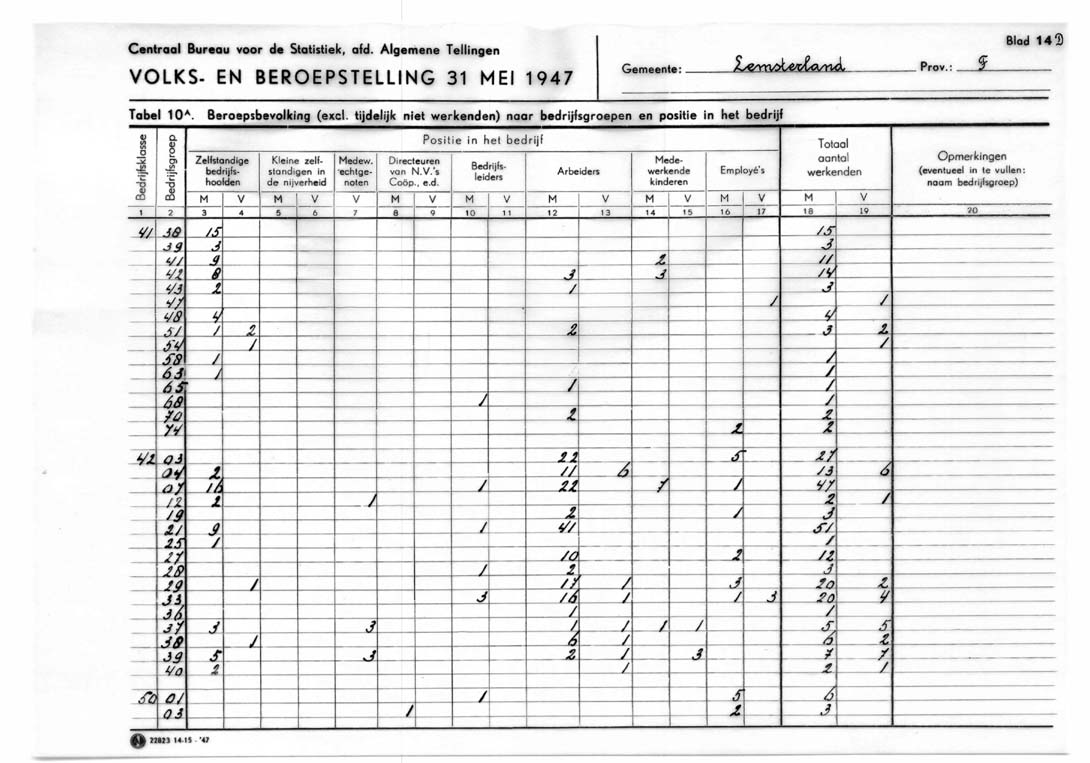 Centraal Bureau voor de Statistiek, afd. Algemene Tellingen
VOLKS- EN BEROEPSTELLING 31 MEI 1947
Gemeente: Lemsterland Prov.: F
Blad 14D
Tabel 10A. Beroepsbevolking (excl. tijdelijk niet werkenden) naar bedrijfsgroepen en positie in het bedrijf
Bedrijfsklasse Bedrijfsgroep Positie in het bedrijf Totaal aantal werkenden Opmerkingen (eventueel in te vullen: naam bedrijfsgroep)
Zelfstandige bedrijfshoofden Kleine zelfstandigen in de nijverheid Medew. echtgenoten Directeuren van N.V.'s Coöp., e.d. Bedrijfsleiders Arbeiders Medewerkende kinderen Employé's
M V M V V M V M V M V M V M V M V
1 2 3 4 5 6 7 8 9 10 11 12 13 14 15 16 17 18 19 20
41 38 15 15
39 3 3
41 9 2 11
42 8 3 3 14
43 2 1 3
47 1 1
48 4 4
51 1 2 2 3 2
54 1 1
58 1 1
63 1 1
65 1 1
68 1 1
70 2 2
74 2 2
42 03 22 5 27
04 2 11 6 13 6
07 16 1 22 7 1 47
12 2 1 2 1
19 2 1 3
21 9 1 41 51
25 1 1
27 10 2 12
28 1 2 3
29 1 17 1 3 20 2
33 3 16 1 1 3 20 4
36 1 1
37 3 3 1 1 1 1 5 5
38 1 6 1 6 2
39 5 3 2 1 3 7 7
40 2 1 2 1
50 01 1 5 6
03 1 2 3
22823 14-15 - '47